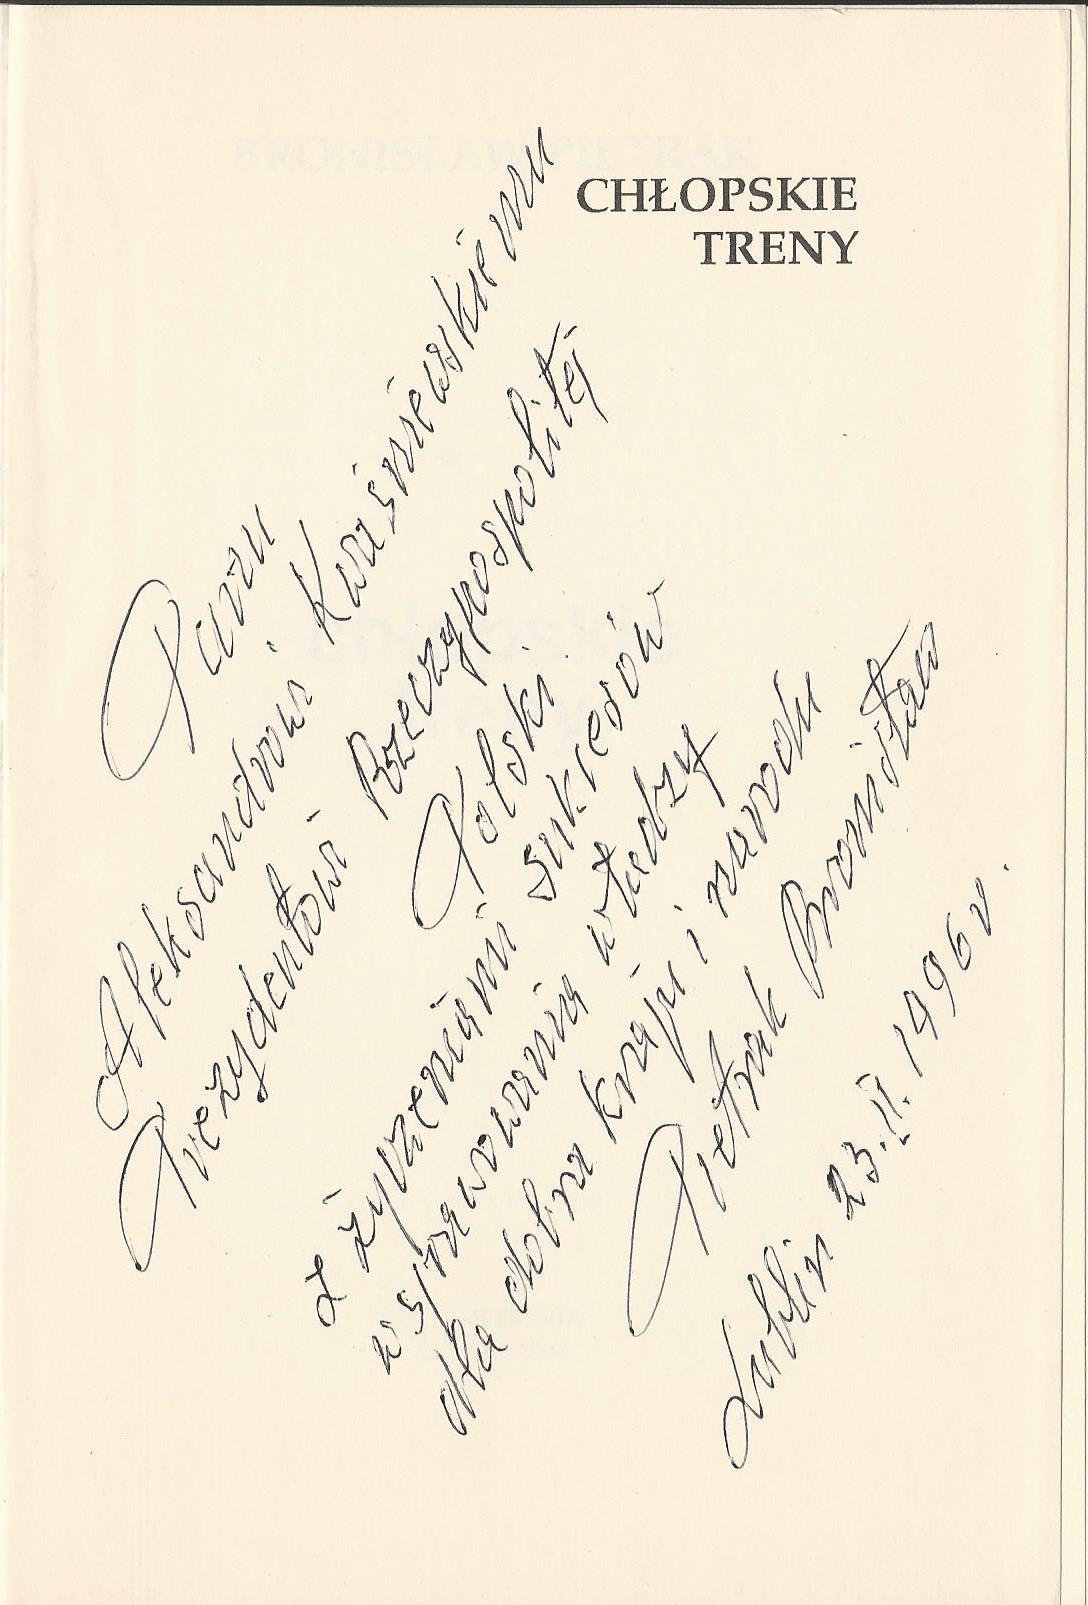 CHŁOPSKIE
TRENY
Panu
Aleksandrowi Kwaśniewskiemu
Prezydentowi Rzeczypospolitej
Polski
z życzeniami sukcesów
w sprawowania władzy
dla dobra kraju i narodu
Pietrak Bronisław
Lublin 23.II.1996r.